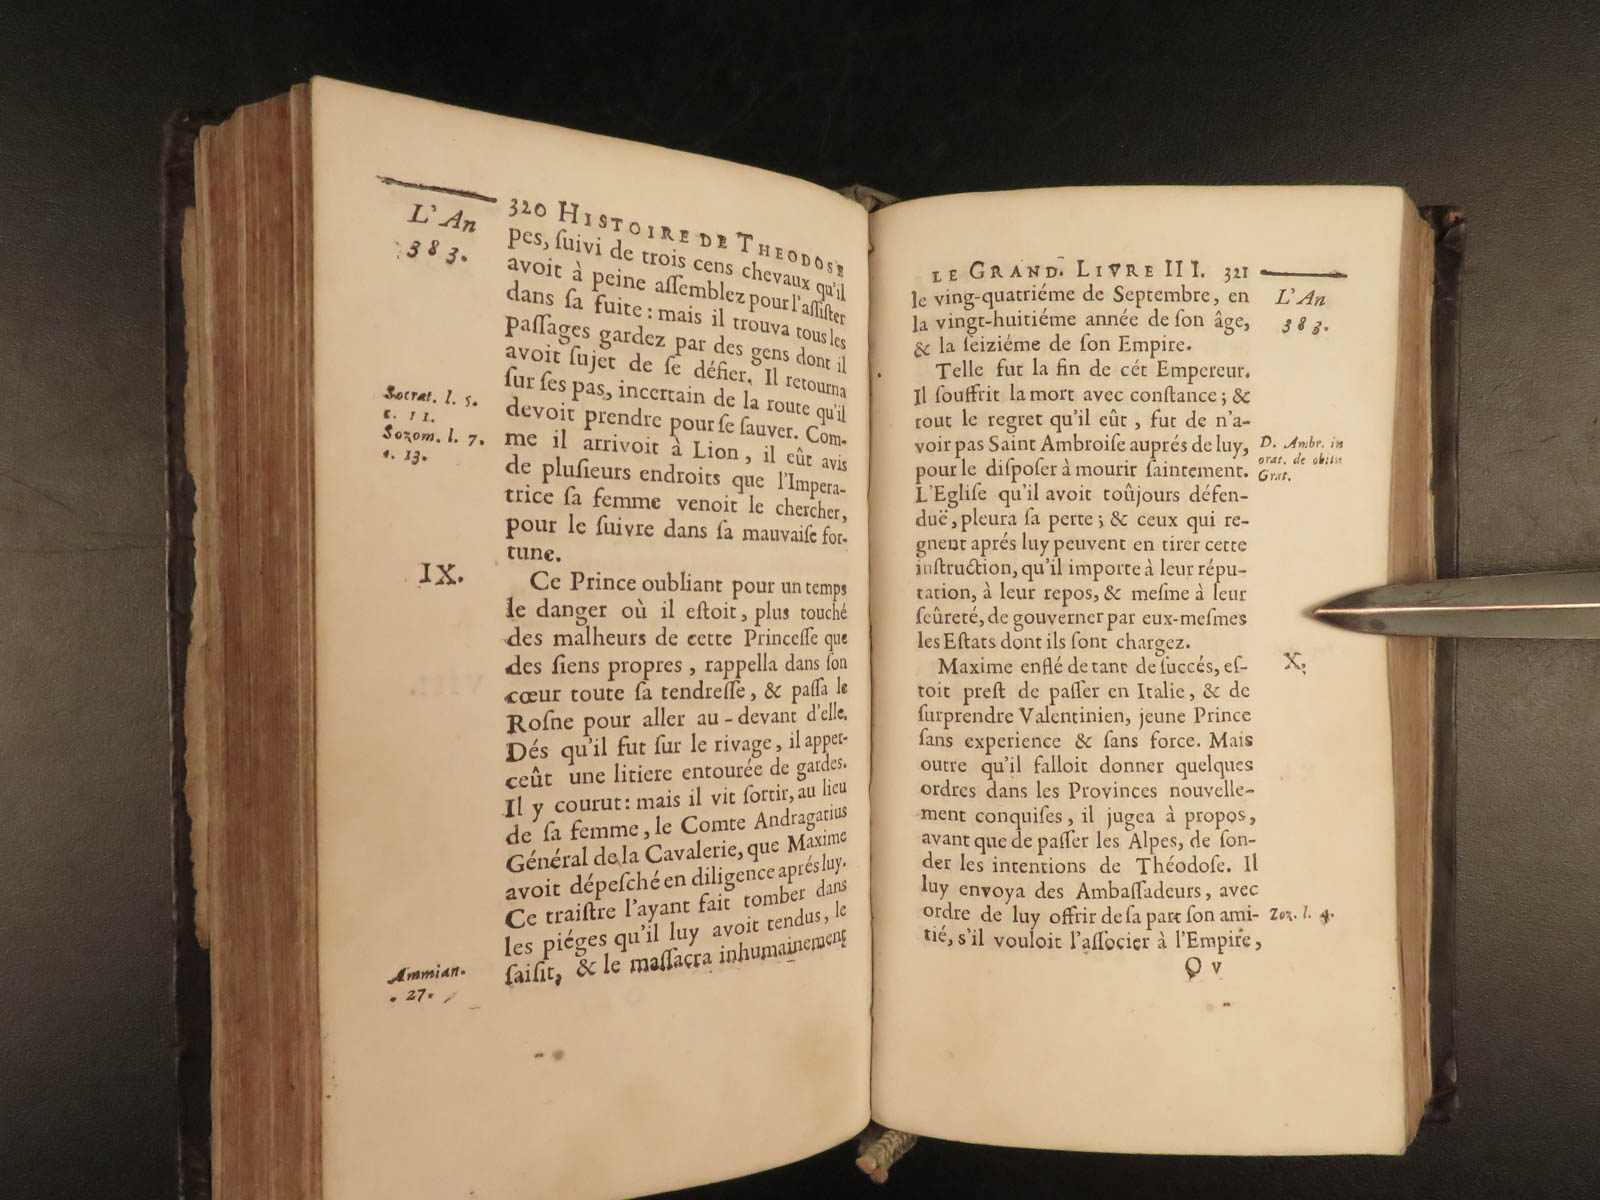 L'An
383.
320 HISTOIRE DE THEODOSE
pes, ſuivi de trois cens chevaux qu'il
avoit à peine aſſemblez pour l'aſſiſter
dans ſa fuite : mais il trouva tous les
paſſages gardez par des gens dont il
avoit ſujet de ſe défier. Il retourna
ſur ſes pas, incertain de la route qu'il
devoit prendre pour ſe ſauver. Com-
me il arrivoit à Lion, il eût avis
de pluſieurs endroits que l'Impera-
trice ſa femme venoit le chercher,
pour le ſuivre dans ſa mauvaiſe for-
tune.
Socrat. l. 5.
c. 11.
Sozom. l. 7.
c. 13.
IX.
Ce Prince oubliant pour un temps
le danger où il eſtoit, plus touché
des malheurs de cette Princeſſe que
des ſiens propres, rappella dans ſon
cœur toute ſa tendreſſe, & paſſa le
Roſne pour aller au-devant d'elle.
Dés qu'il fut ſur le rivage, il apper-
ceût une litiere entourée de gardes.
Il y courut : mais il vit ſortir, au lieu
de ſa femme, le Comte Andragatius
Général de la Cavalerie, que Maxime
avoit dépeſché en diligence aprés luy.
Ce traiſtre l'ayant fait tomber dans
les piéges qu'il luy avoit tendus, le
ſaiſit, & le maſſacra inhumainement
Ammian.
27.
LE GRAND. LIVRE III. 321
L'An
383.
le ving-quatriéme de Septembre, en
la vingt-huitiéme année de ſon âge,
& la ſeiziéme de ſon Empire.
Telle fut la fin de cét Empereur.
Il ſouffrit la mort avec conſtance ; &
tout le regret qu'il eût, fut de n'a-
voir pas Saint Ambroiſe auprés de luy,
pour le diſpoſer à mourir ſaintement.
L'Egliſe qu'il avoit toûjours défen-
duë, pleura ſa perte ; & ceux qui re-
gnent aprés luy peuvent en tirer cette
inſtruction, qu'il importe à leur répu-
tation, à leur repos, & meſme à leur
ſeûreté, de gouverner par eux-meſmes
les Eſtats dont ils ſont chargez.
D. Ambr. in
orat. de obitu
Grat.
X.
Maxime enflé de tant de ſuccés, eſ-
toit preſt de paſſer en Italie, & de
ſurprendre Valentinien, jeune Prince
ſans experience & ſans force. Mais
outre qu'il falloit donner quelques
ordres dans les Provinces nouvelle-
ment conquiſes, il jugea à propos,
avant que de paſſer les Alpes, de ſon-
der les intentions de Théodoſe. Il
luy envoya des Ambaſſadeurs, avec
ordre de luy offrir de ſa part ſon ami-
tié, s'il vouloit l'aſſocier à l'Empire,
Zoz. l. 4.
Q v